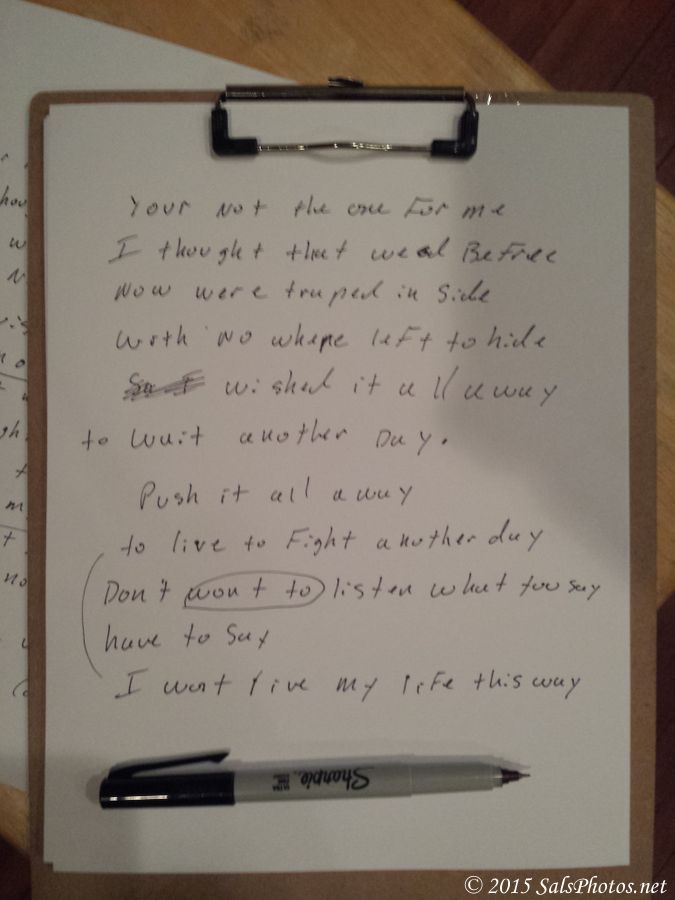 Your Not the one For me
I thought that wed Be Free
Now were traped in Side
With No where left to hide
wished it all away
to wait another Day.
Push it all away
to live to Fight another day
Don't wont to listen what too say
have to Say
I wont live my life this way
Sharpie
© 2015 SalsPhotos.net